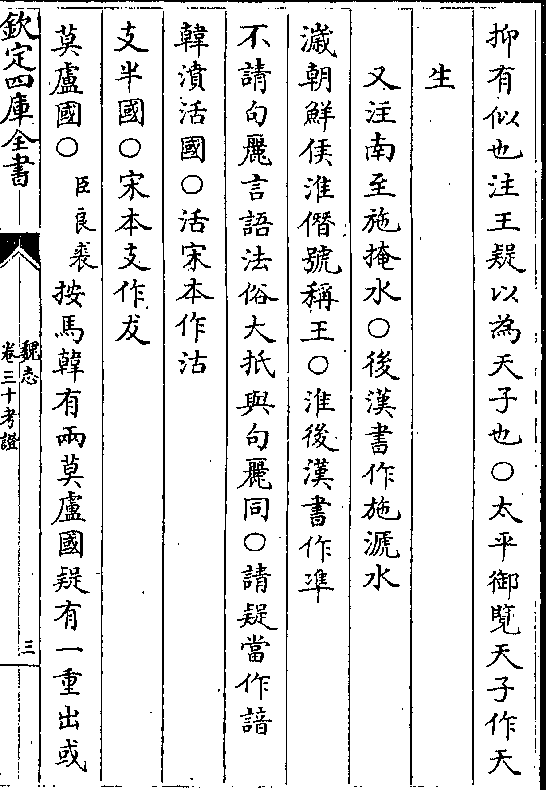 抑有似也注王疑以為天子也○太平御覽天子作天
生
又注南至施掩水○後漢書作施㴲水
濊朝鮮侯淮僭號稱王○淮後漢書作準
不請句麗言語法俗大抵與句麗同○請疑當作諳
韓濆活國○活宋本作沽
支半國○宋本支作犮
莫盧國○臣良裘按馬韓有兩莫盧國疑有一重出或
欽定四庫全書
魏志
卷三十考證
三